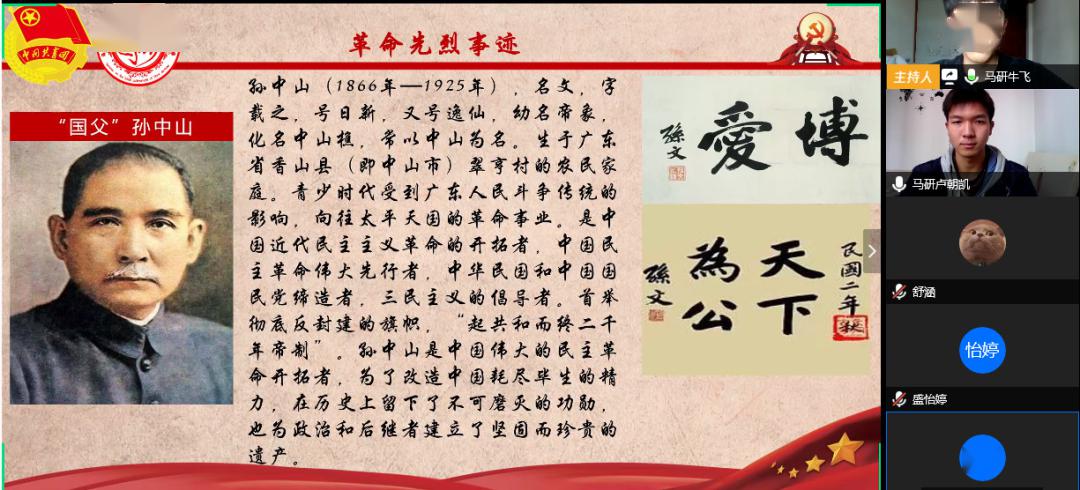 中国共青团
革命先烈事迹
“国父”孙中山
孙中山（1866年—1925年），名文，字
载之，号日新，又号逸仙，幼名帝象，
化名中山樵，常以中山为名。生于广东
省香山县（即中山市）翠亨村的农民家
庭。青少时代受到广东人民斗争传统的
影响，向往太平天国的革命事业。是中
国近代民主主义革命的开拓者，中国民
主革命伟大先行者，中华民国和中国国
民党缔造者，三民主义的倡导者。首举
彻底反封建的旗帜，“起共和而终二千
年帝制”。孙中山是中国伟大的民主革
命开拓者，为了改造中国耗尽毕生的精
力，在历史上留下了不可磨灭的功勋，
也为政治和后继者建立了坚固而珍贵的
遗产。
博愛
孫文
民國二年
天下
為公
孫文
主持人 马研牛飞
马研卢朝凯
舒涵
怡婷
盛怡婷